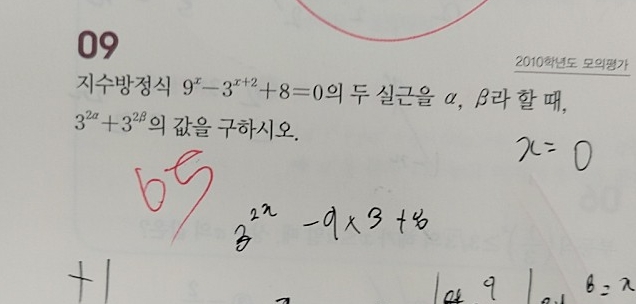 09
2010학년도 모의평가
지수방정식 9^x-3^{x+2}+8=0의 두 실근을 α, β라 할 때,
3^{2α}+3^{2β}의 값을 구하시오.
x= 0
65
3^{2x} -9×3 +8
+1